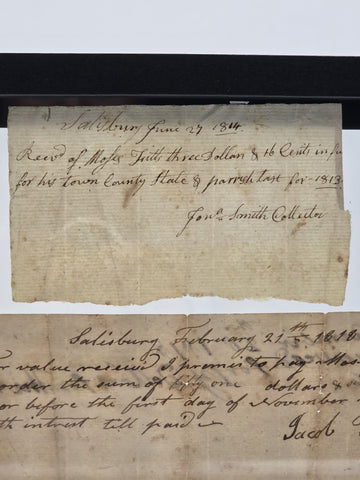 Salisbury June 27 1814.
Recivd of Moses Tutts three Dollars & 16 Cents in fu
for his Town County State & parrish tax for 1813
Jona Smith Collector
Salisbury February 21th 1818
or value received I promis to pay Mos
order the sum of fifty one dollars &
or before the first day of November
th intrest till paid
Jacob